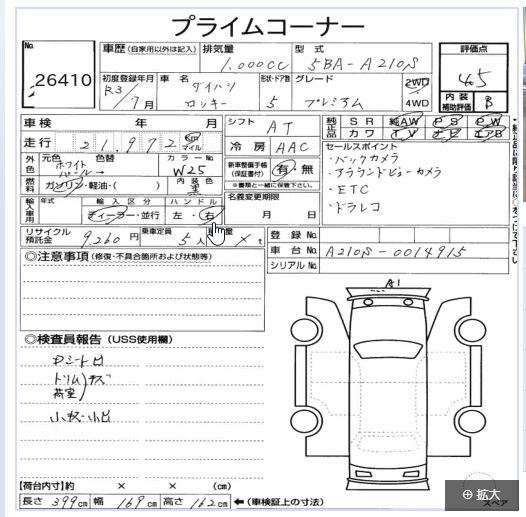 プライムコーナー
No.
26410
車歴 (自家用以外は記入)
排気量
1,000CC
型式
5BA-A210S
評価点
4.5
内装補助評価
B
初度登録年月
R3/7月
車名
ダイハツ
ロッキー
形状・ドア数
5
グレード
プレミアム
2WD
4WD
車検 年 月
走行
21,972
km
マイル
シフト
AT
冷房
AAC
純正品
SR 純AW PS PW
カワ TV ナビ エアB
セールスポイント
・バックカメラ
・アラウンドビューカメラ
・ETC
・ドラレコ
外色
元色
ホワイト
パール→
色替
カラーNo.
W25
内装色
燃料
ガソリン・軽油・( )
新車整備手帳
(保証書付)
有・無
※書類と一緒に保管下さい。
輸入車用
年式
輸入区分
ディーラー・並行
ハンドル
左・右
名義変更期限
月 日
リサイクル預託金
9,260円
乗車定員
5人
量
X t
登録No.
車台No.
A210S-0014915
シリアルNo.
◎注意事項 (修復・不具合箇所および改造等)
A1
◎検査員報告 (USS使用欄)
Dシート凹
トリム
荷室
キズ
小キズ小凹
【荷台内寸】 × × (cm)
長さ 399cm 幅 169cm 高さ 162cm ←(車検証上の寸法)
スペア
⊕ 拡大